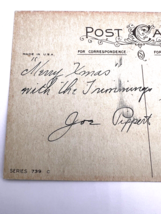 POST CA
MADE IN U.S.A.
FOR CORRESPONDENCE
FOR
"Merry Xmas
with the Trimmings
Joe Pippert
SERIES 739 C